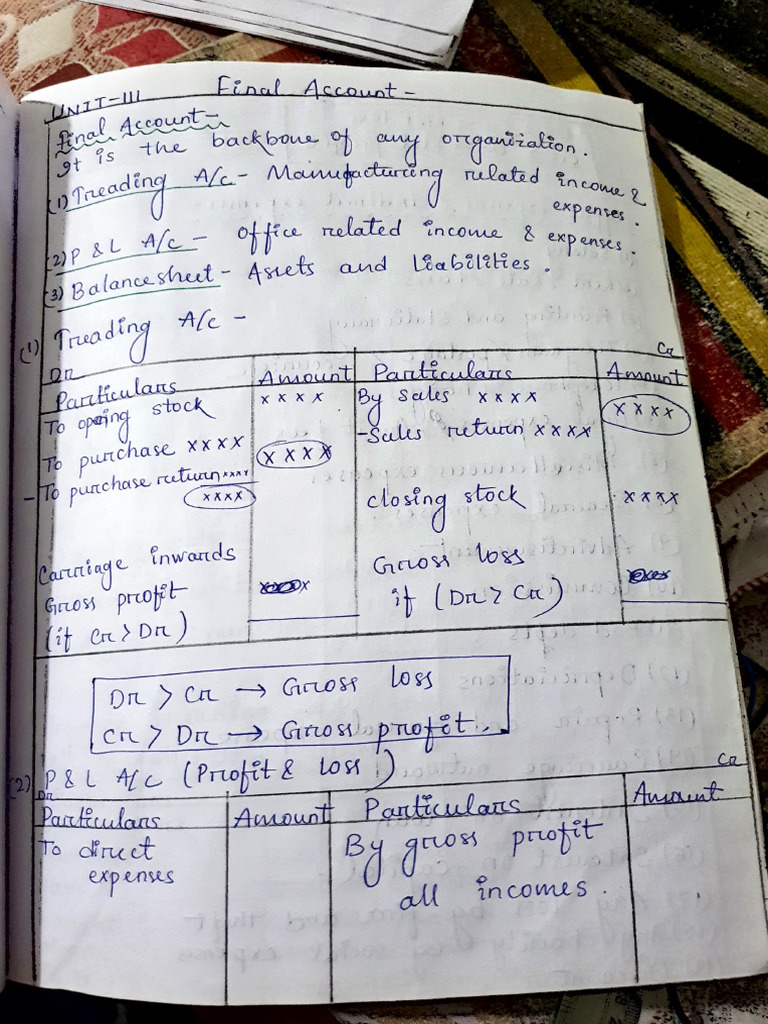 UNIT-III Final Account -
Final Account -
It is the backbone of any organization.
(1) Treading A/c - Manufacturing related income &
expenses.
(2) P & L A/c - Office related income & expenses.
(3) Balancesheet - Assets and Liabilities.
(1) Treading A/c -
Dr Cr
Particulars Amount Particulars Amount
To opening stock xxxx By sales xxxx xxxx
To purchase xxxx xxxx -Sales return xxxx
- To purchase return xxxx
xxxx closing stock xxxx
Carriage inwards Gross loss
Gross profit if (Dr > Cr)
(if Cr > Dr)
Dr > Cr → Gross loss
Cr > Dr → Gross profit.
(2) P & L A/c (Profit & Loss) Cr
Dr
Particulars Amount Particulars Amount
To direct By gross profit
expenses all incomes.